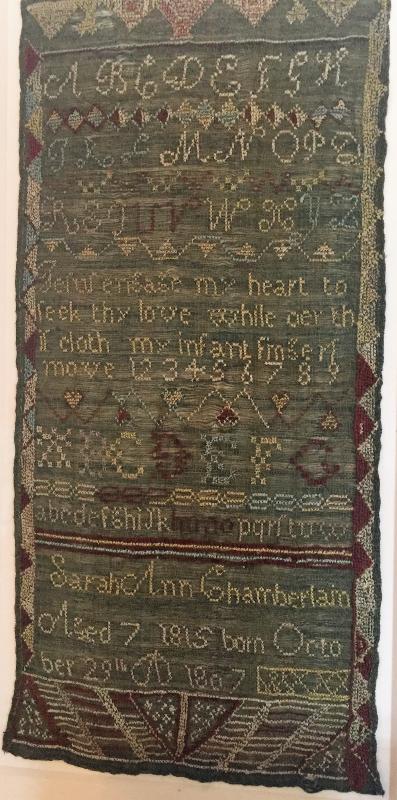 A B C D E F G H
I K L M N O P Q
R S T U V W X Y Z
Jesus engage my heart to
seek thy love while oer th
is cloth my infant fingers
move 12 3 4 5 6 7 8 9
A B C D E F G
abcdefghijklmnopqrstuvw
Sarah Ann Chamberlain
Aged 7 1815 born Octo
ber 29th AD 1807